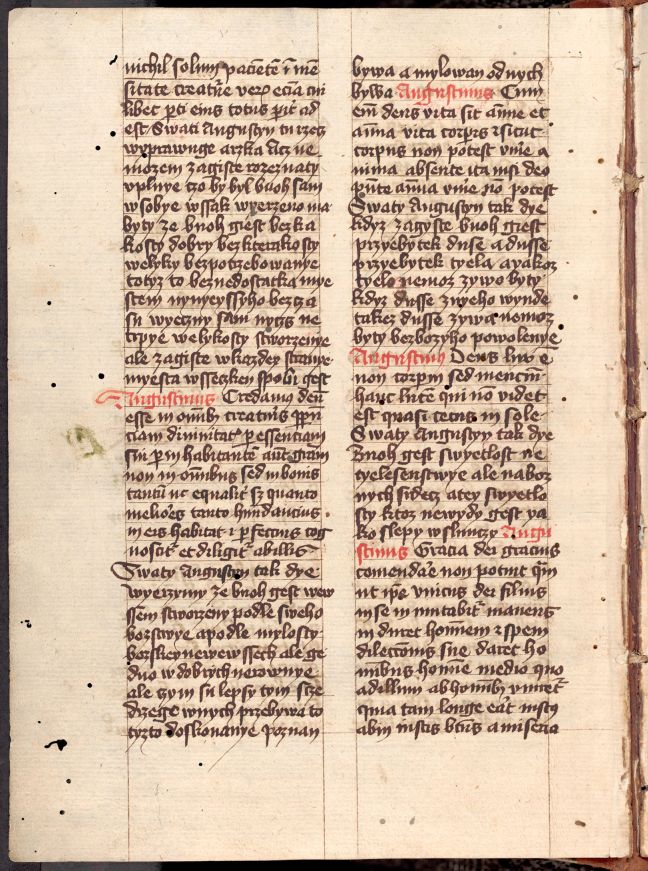 nichil solum pacietē ī mē
sitate creatur̄e vero eciā cui
libet p̄ti eius totus p̄it ad
est Swati Augustyn tu rzecz
wyprawuge arzka Acz ne
mozem zagiste rozeznaty
vplnye czo by byl buoh sam
w sobye wssak wyerzeno ma
byty ze buoh giest bez ka
kosty dobry bez kterakosty
welyky bez potrzebowanye
totyz to bez nedostatka mye
stem nynyeyssyho bez cza
su wyeczny sam nyczs ne
trpye welykosty stworzenye
ale zagiste w kazdey stranye
myesta wsseczken spolu gest
Augustinus Credamus deū
esse in omībz creaturis p̄pn
ciam diuinitat̄ p essentiam
sui p in habitantē aut̄ gram
non in omībus sed in bonis
tantū nc equalit̄ sz quanto
meliores tanto hiis adiucius
in eis habitat ⁊ p fectius cog
noscit̄ et diligit̄ ab illis
Swaty Augustyn tak dye
wyerzymy ze buoh gest wew
ssem stworzeny podle sweho
bozstwye a podle mylosty
borskey ne we wssech ale ge
dno w dobrych ne rownye
ale czym su lepsy tym szcze
drzege w nych przebywa to
tyzto doskonanye poznan
bywa a mylowan od nych
bywa Augustinus Cum
em̄ deus vita sit aīme et
aīma vita corpis ⁊ sicut
corpus non potest viue a
nima absente ita nisi deo
p̄nte aīma viue no potest
Swaty Augustyn tak dye
kdyz zagyste buoh giest
przyebytek dusse a dusse
przyebytek tyela a yakoz
tyelo nemoz zywo byty
kdyz dusse z nyeho wynde
takez dusse zywa nemoz
byty bez bozyho powolenye
Augustinus Deus lux e
non corpm̄ sed mencm̄
hanc lucē qui no videt
est quasi cecus in sole
Swaty Augustyn tak dye
Buoh gest swyetlost ne
tyelesenstwye ale naboz
nych srdecz a tey swyetlo
sty ktoz newydy gest ya
ko slepy w sluneczy Augu
stinus Gracia dei gracius
comendāe non potuit q̄m
ut ip̄e vnicus dei filius
in se in mutabilit̄ manens
in duret hom̄em ⁊ spem
dilectionis sue daret ho
mībus home medio quo
ad illum ab homībz venirēt̄
qui a tam longe erāt iustꝯ
ab in iustis btūs a miseria